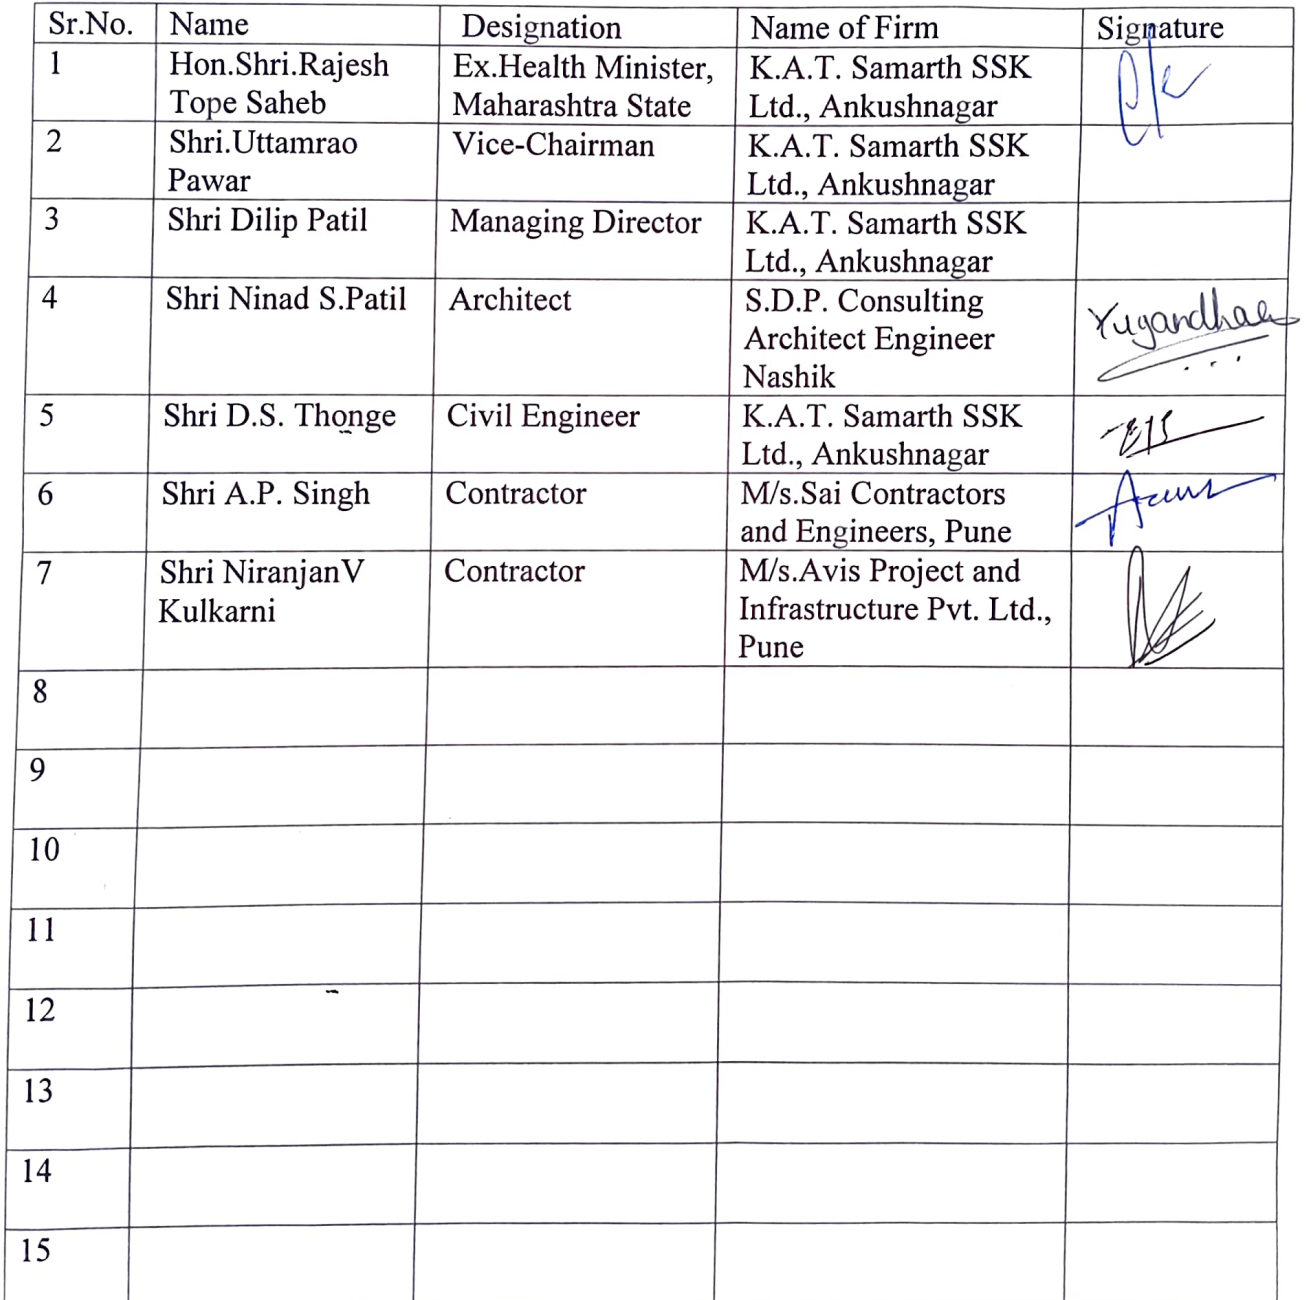 Sr.No. Name Designation Name of Firm Signature
1 Hon.Shri.Rajesh Ex.Health Minister, K.A.T. Samarth SSK
Tope Saheb Maharashtra State Ltd., Ankushnagar
2 Shri.Uttamrao Vice-Chairman K.A.T. Samarth SSK
Pawar Ltd., Ankushnagar
3 Shri Dilip Patil Managing Director K.A.T. Samarth SSK
Ltd., Ankushnagar
4 Shri Ninad S.Patil Architect S.D.P. Consulting
Architect Engineer Yugandhae
Nashik
5 Shri D.S. Thonge Civil Engineer K.A.T. Samarth SSK
Ltd., Ankushnagar
6 Shri A.P. Singh Contractor M/s.Sai Contractors
and Engineers, Pune
7 Shri NiranjanV Contractor M/s.Avis Project and
Kulkarni Infrastructure Pvt. Ltd.,
Pune
8
9
10
11
12
13
14
15